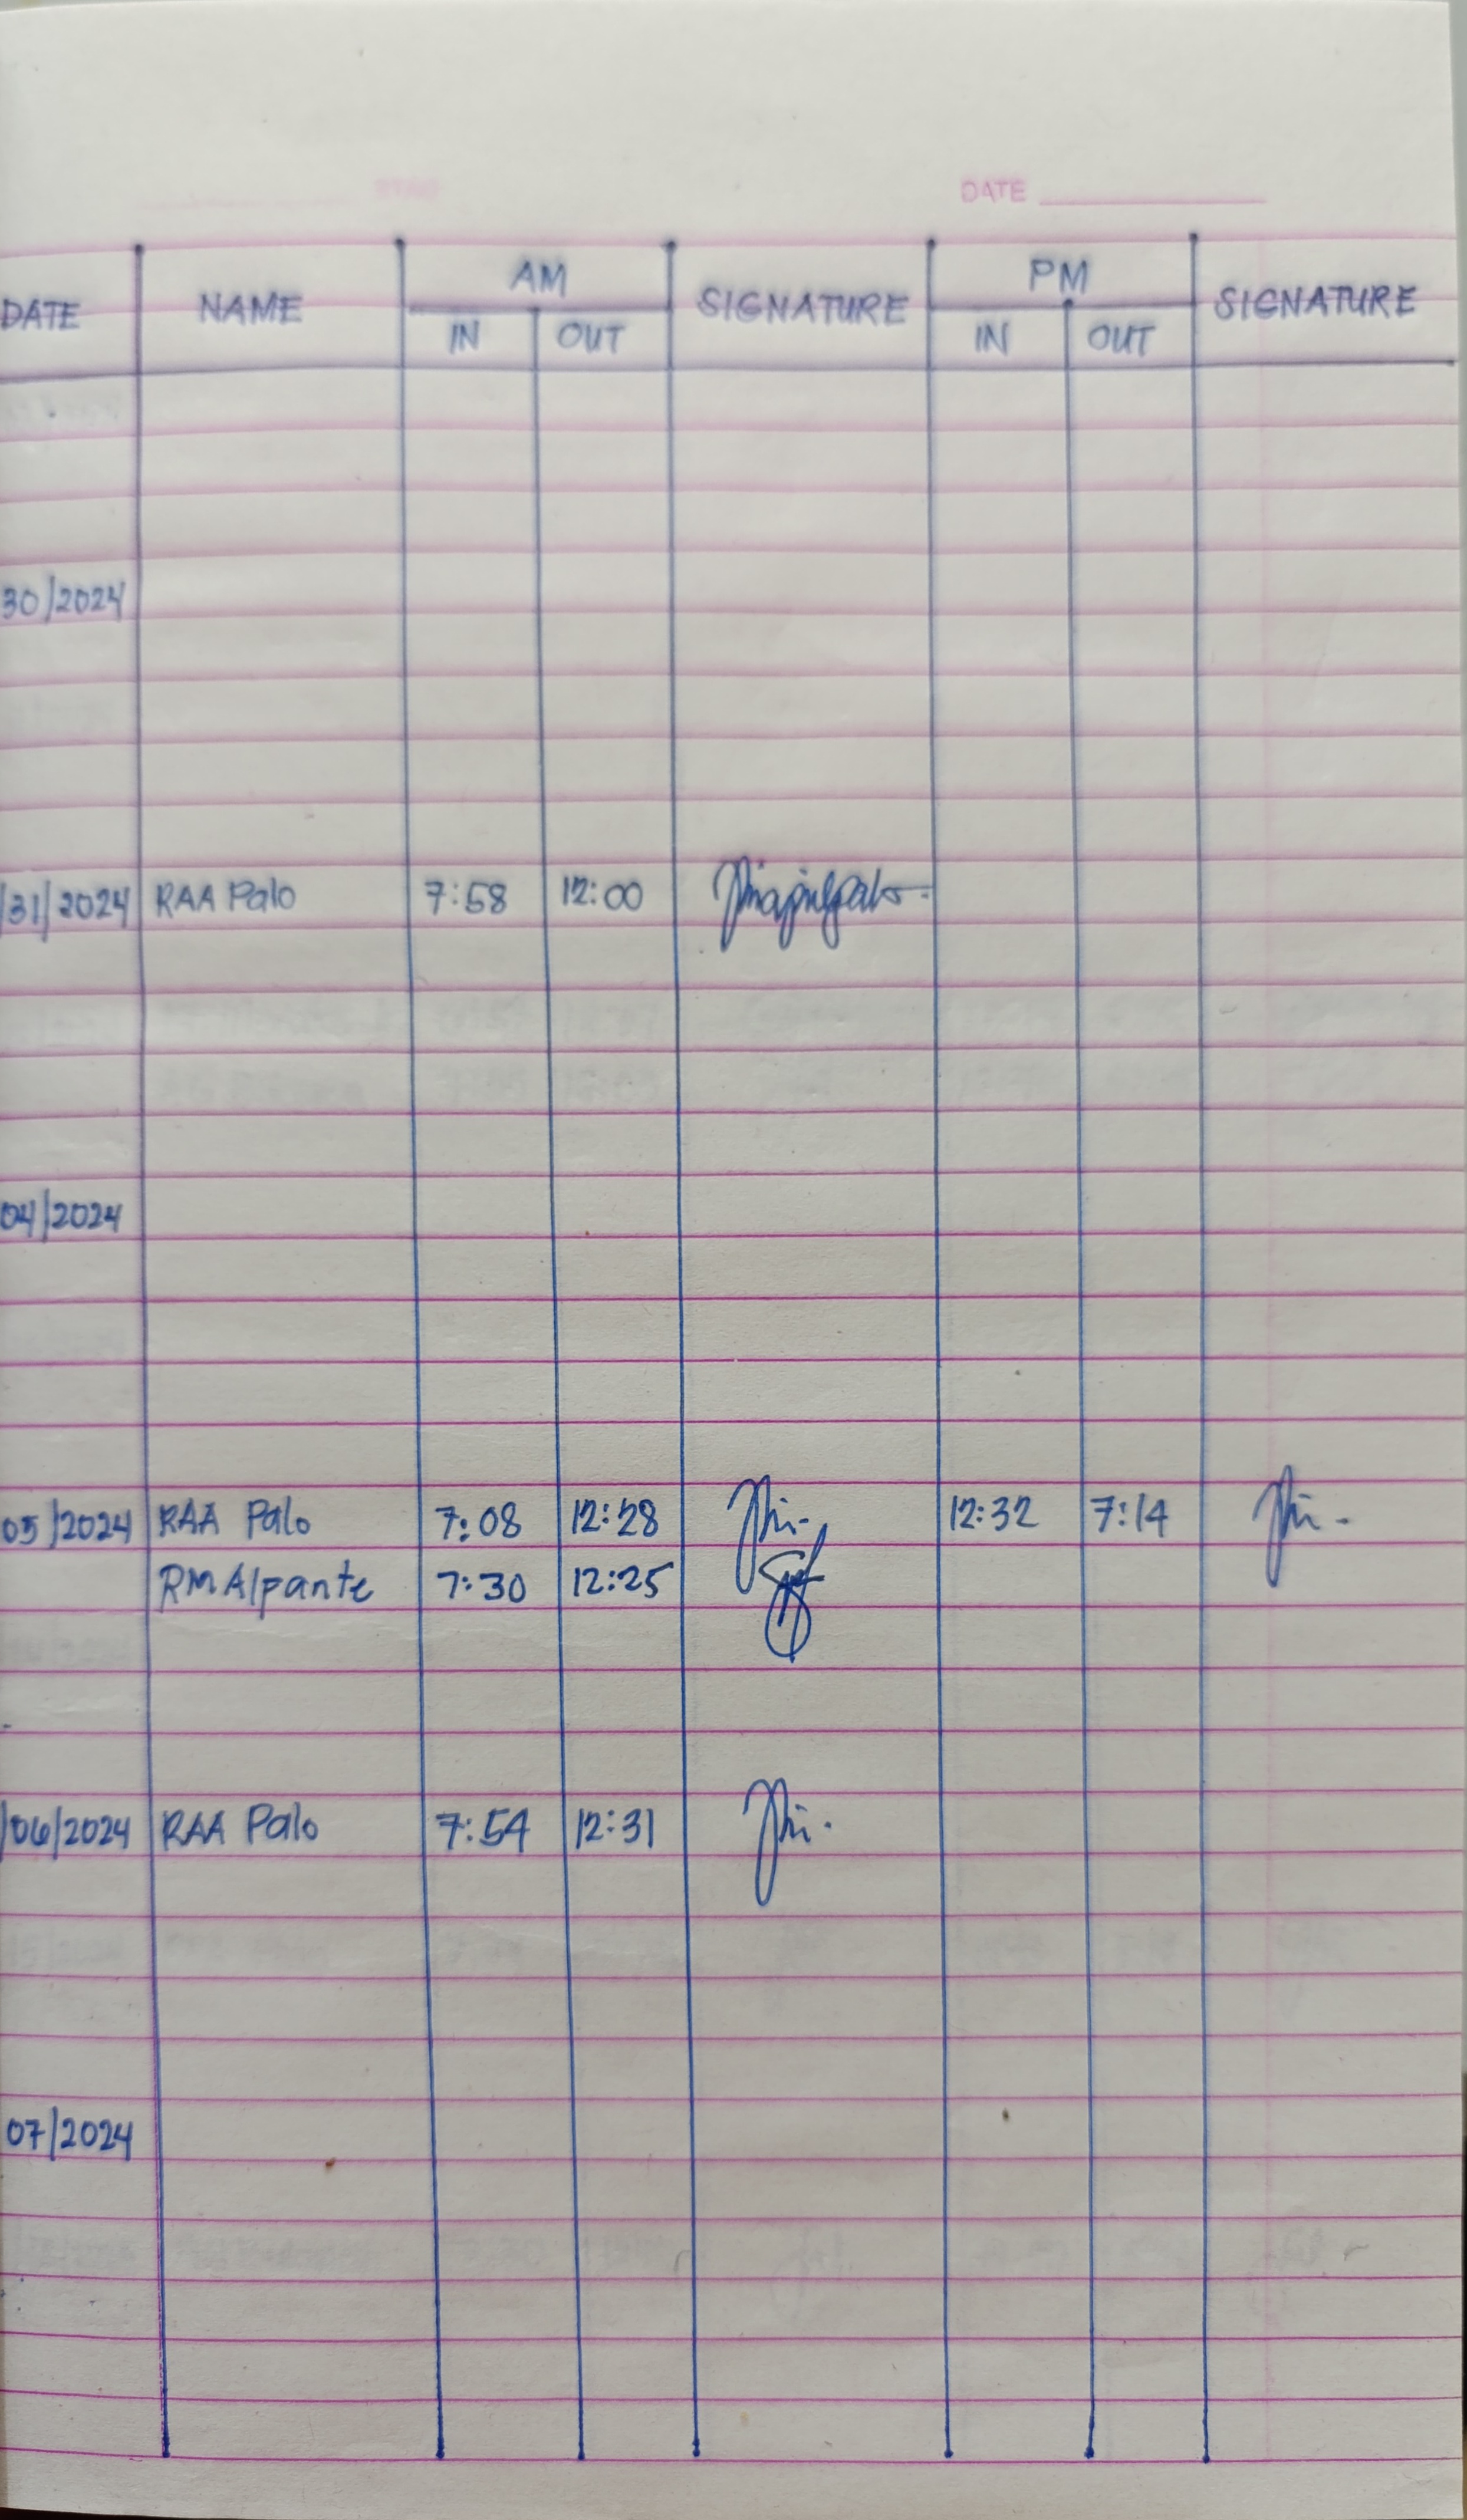 DATE
DATE NAME AM SIGNATURE PM SIGNATURE
IN OUT IN OUT
30/2024
/31/2024 RAA Palo 7:58 12:00
04/2024
05/2024 RAA Palo 7:08 12:28 12:32 7:14
RM Alpante 7:30 12:25
/06/2024 RAA Palo 7:54 12:31
07/2024